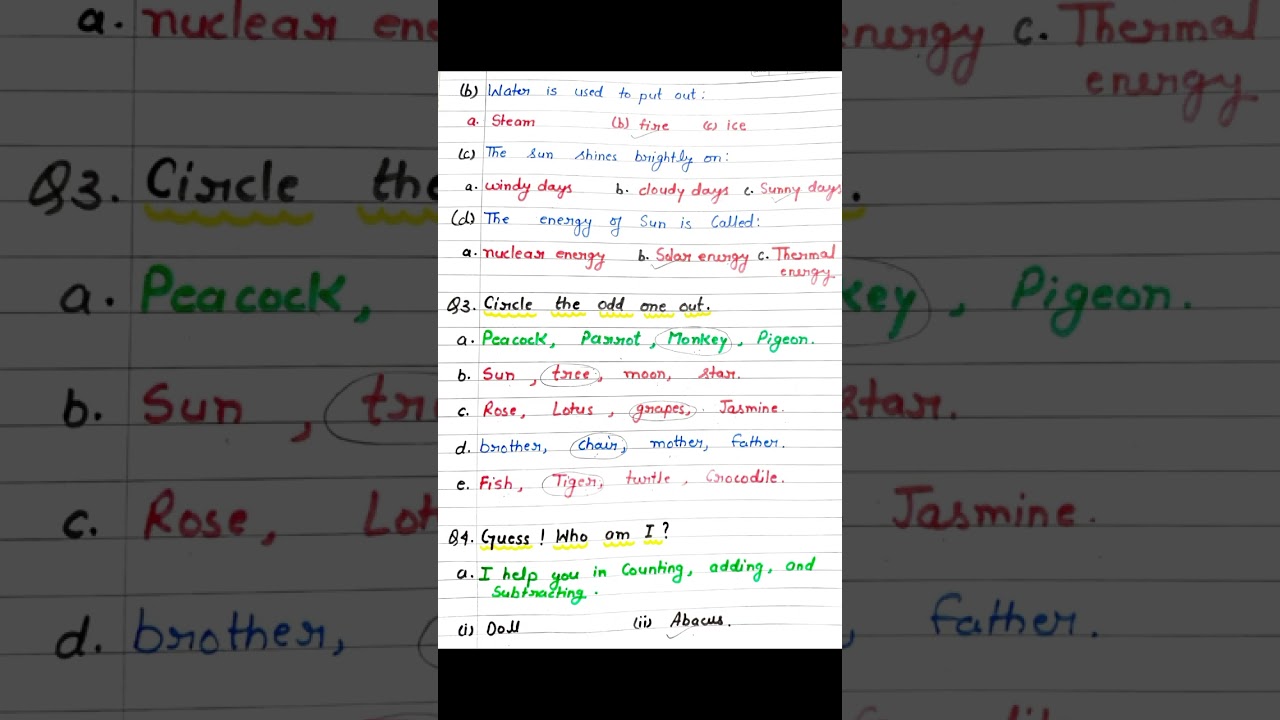 (b) Water is used to put out:
a. Steam (b) fire (c) ice
(c) The sun shines brightly on:
a. windy days b. cloudy days c. Sunny days
(d) The energy of Sun is Called:
a. nuclear energy b. Solar energy c. Thermal
energy
Q3. Circle the odd one out.
a. Peacock, Parrot, Monkey, Pigeon.
b. Sun, tree, moon, star.
c. Rose, Lotus, grapes, Jasmine.
d. brother, chair, mother, father.
e. Fish, Tiger, turtle, Crocodile.
Q4. Guess! Who am I?
a. I help you in Counting, adding, and
Subtracting.
(i) Doll (ii) Abacus.